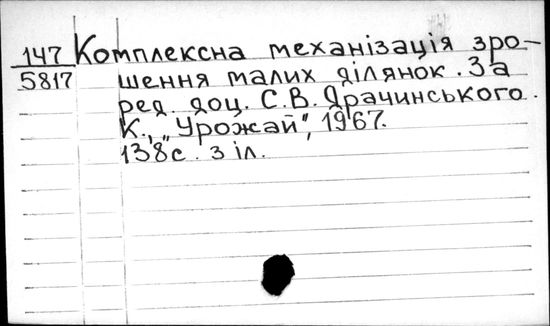 147 Комплексна механізація зро-
5817 шення малих ділянок. За
ред. доц. С.В. Драчинського.
К., "Урожай", 1967.
138с. з іл.